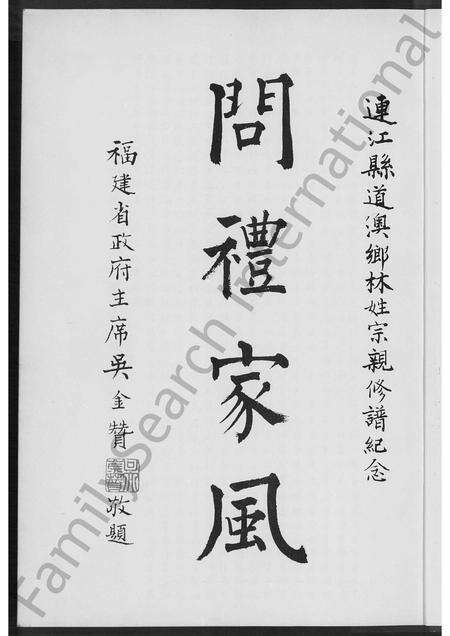 連江縣道澳鄉林姓宗親修譜紀念
問禮家風
福建省政府主席吳金贊敬題
FamilySearch International